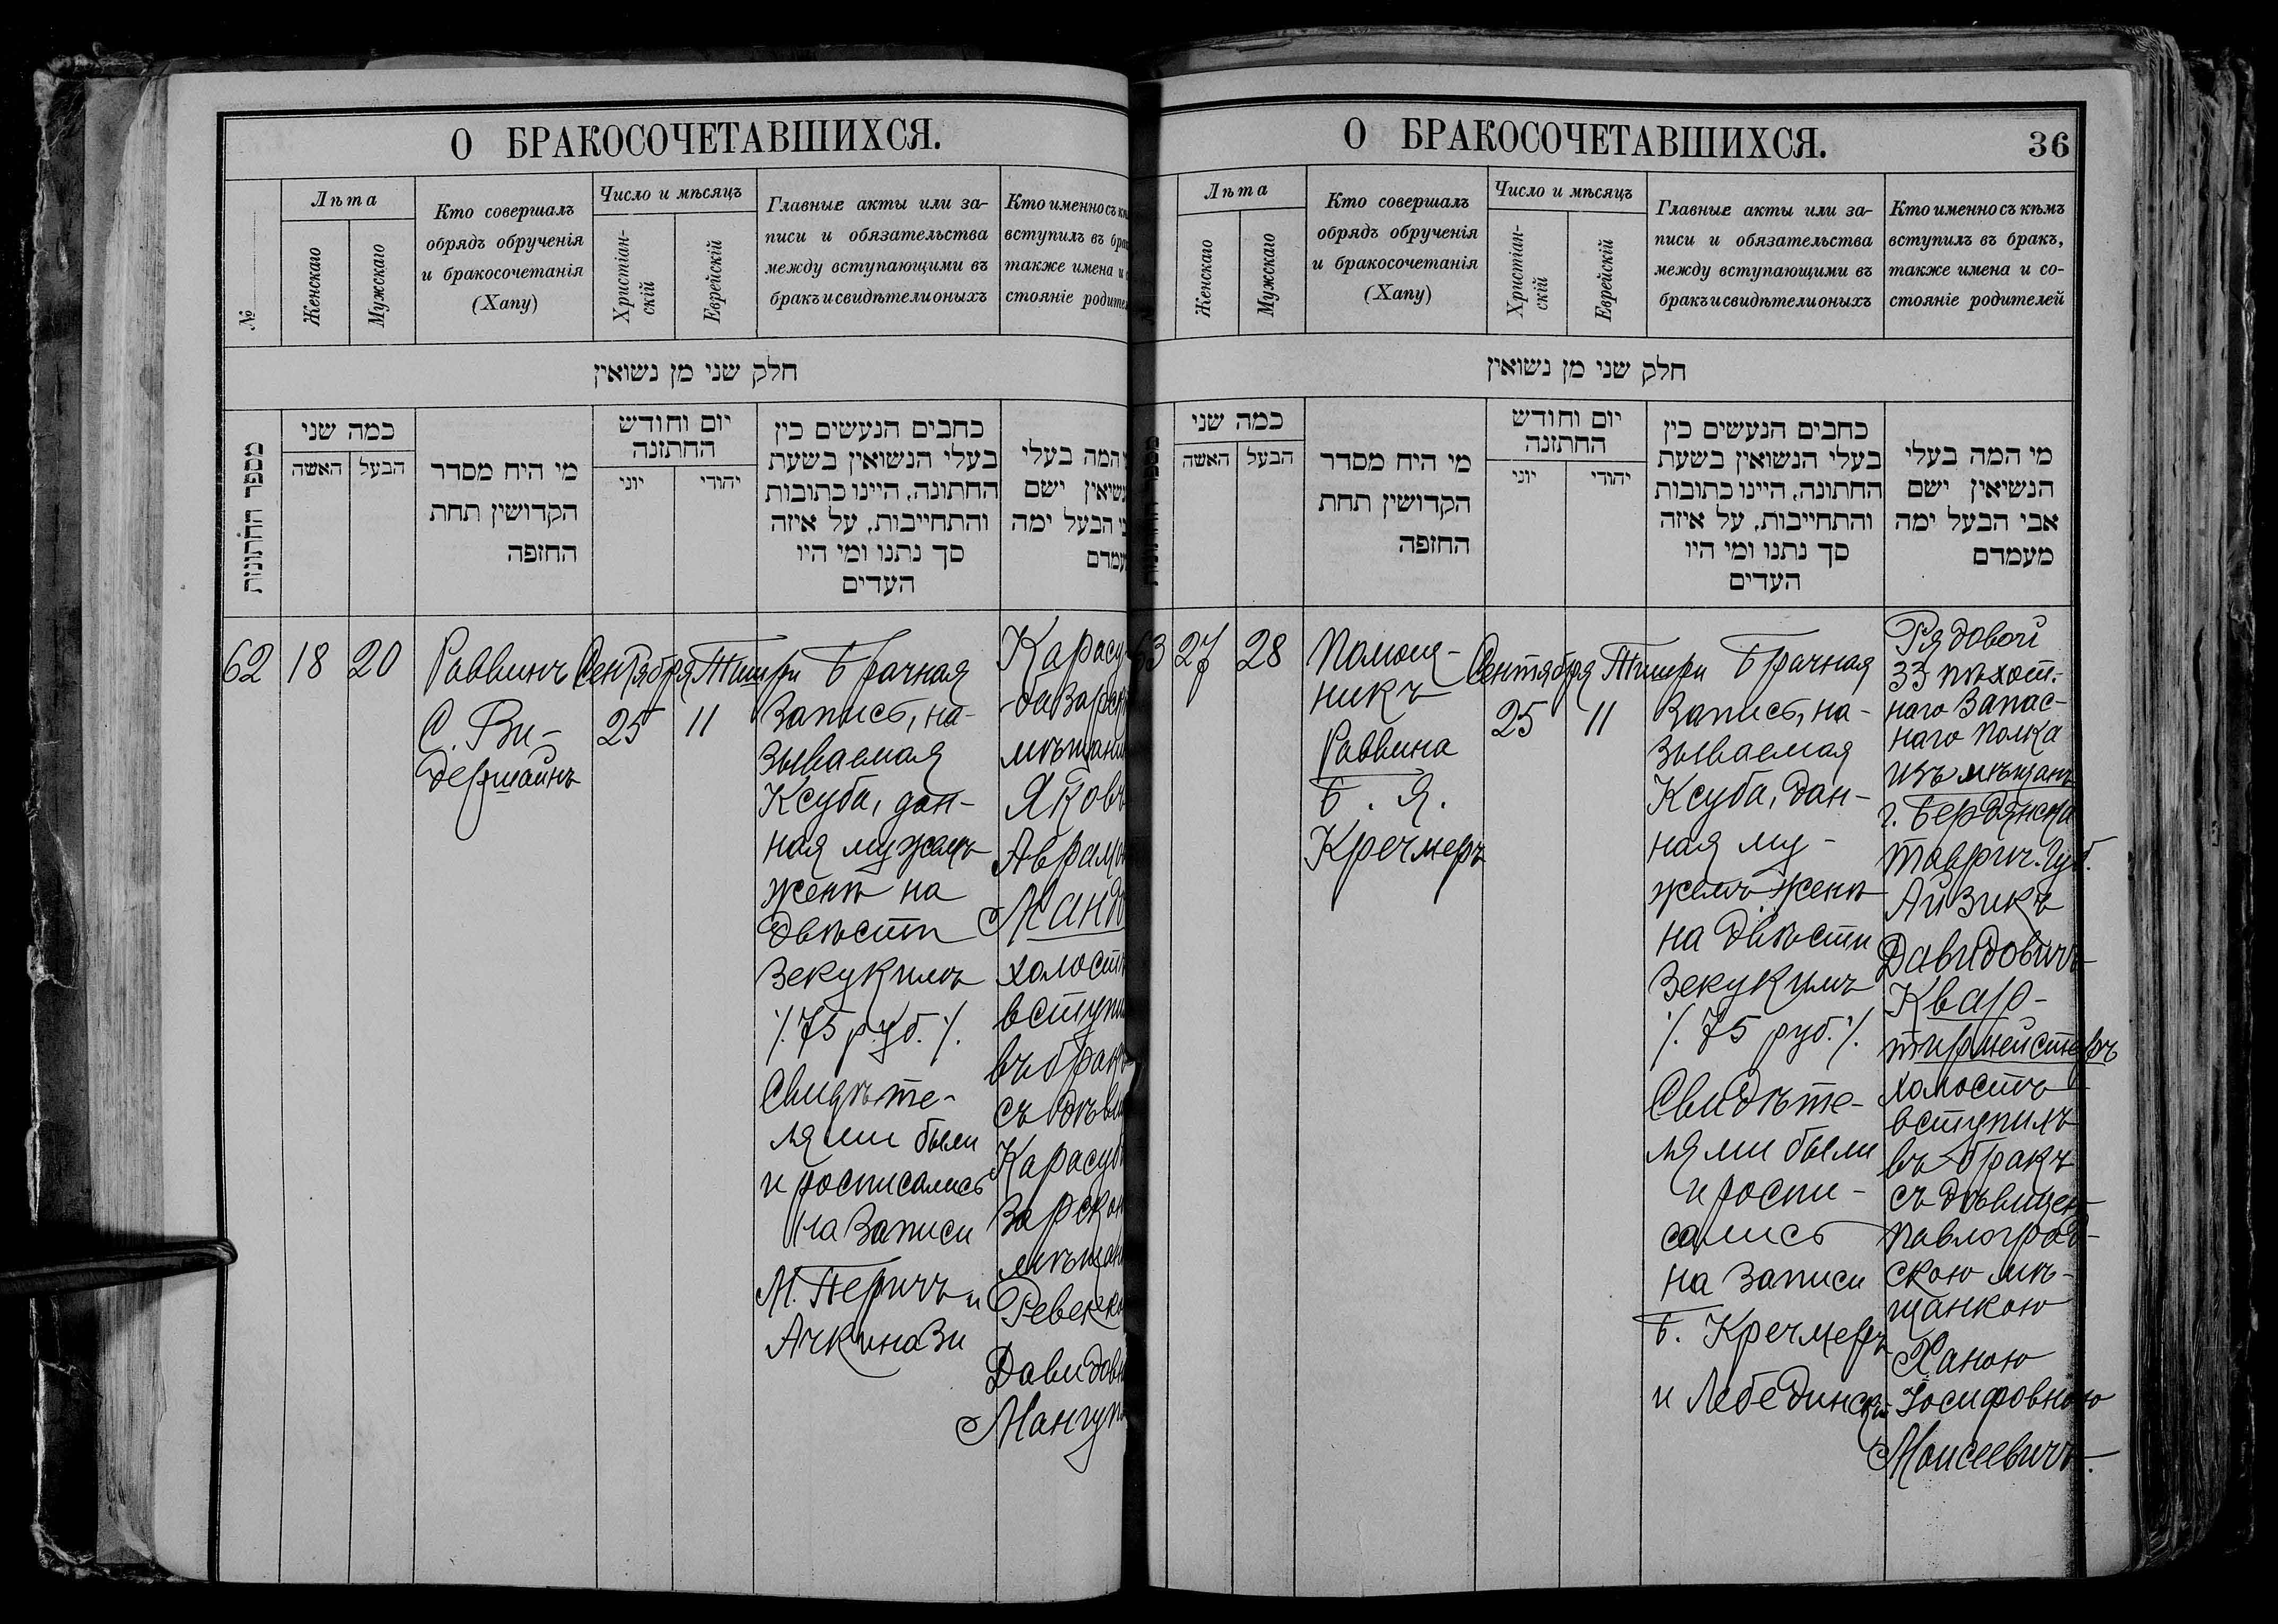 О БРАКОСОЧЕТАВШИХСЯ.
№
Лѣта
Женскаго
Мужскаго
Кто совершалъ
обрядъ обрученія
и бракосочетанія
(Хапу)
Число и мѣсяцъ
Христіан-
скій
Еврейскій
Главные акты или за-
писи и обязательства
между вступающими въ
бракъ и свидѣтели оныхъ
Кто именно съ
вступилъ въ
также имена и
стояніе
חלק שני מן נשואין
מספר החתונות
כמה שני
האשה
הבעל
מי היח מסדר
הקדושין תחת
החזפה
יום וחודש
החתזנה
יוני
יהודי
כחבים הנעשים כין
בעלי הנשואין בשעת
החתונה, היינו כתובות
והתחייבות, על איזה
סך נתנו ומי היו
העדים
המה בעלי
ישם
הבעל ימה
62
18
20
Раввинъ
С. Ви-
дерштайнъ
Сентября
25
Тишри
11
Брачная
запись, на-
зываемая
Ксуба, дан-
ная мужемъ
женѣ на
двѣсти
зекукимъ
/. 75 руб. /.
Свидѣте-
лями были
и росписались
на записи
М. Перичъ и
Ачкинази
Карасу
базарск
мѣщани
Яковъ
Аврам
холост
вступи
въ бракъ
съ дѣви
Карасуб
зарской
мѣщан
Ревекко
Давидовн
Мангуп
О БРАКОСОЧЕТАВШИХСЯ.
36
Лѣта
Женскаго
Мужскаго
Кто совершалъ
обрядъ обрученія
и бракосочетанія
(Хапу)
Число и мѣсяцъ
Христіан-
скій
Еврейскій
Главные акты или за-
писи и обязательства
между вступающими въ
бракъ и свидѣтели оныхъ
Кто именно съ кѣмъ
вступилъ въ бракъ,
также имена и со-
стояніе родителей
חלק שני מן נשואין
כמה שני
האשה
הבעל
מי היח מסדר
הקדושין תחת
החזפה
יום וחודש
החתזנה
יוני
יהודי
כחבים הנעשים כין
בעלי הנשואין בשעת
החתונה, היינו כתובות
והתחייבות, על איזה
סך נתנו ומי היו
העדים
מי המה בעלי
הנשיאין ישם
אבי הבעל ימה
מעמדם
63
27
28
Помощ-
никъ
Раввина
Б. Я.
Кречмеръ
Сентября
25
Тишри
11
Брачная
запись, на-
зываемая
Ксуба, дан-
ная му-
жемъ женѣ
на двѣсти
зекукимъ
/. 75 руб. /.
Свидѣте-
лями были
и роспи-
сались
на записи
Б. Кречмеръ
и Лебединскій
Рядовой
33 пѣхот-
наго запас-
наго полка
изъ мѣщанъ
г. Бердянска
Таврич. Губ.
Айзикъ
Давидовичъ
Квар-
тирмейстеръ
холостъ
вступилъ
въ бракъ
съ дѣвицею
Павлоград-
скою мѣ-
щанкою
Ханою
Іосифовною
Моисеевичъ.